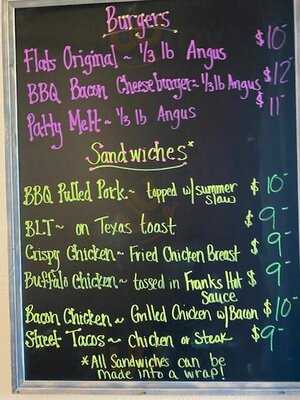 Burgers
Flats Original ~ 1/3 lb Angus $10-
BBQ Bacon Cheeseburger = 1/3 lb Angus $12-
Patty Melt ~ 1/3 lb Angus $11-
Sandwiches*
BBQ Pulled Pork ~ topped w/ summer slaw $10-
BLT ~ on Texas toast $9-
Crispy Chicken ~ Fried Chicken Breast $9-
Buffalo Chicken ~ tossed in Franks Hot Sauce $9-
Bacon Chicken ~ Grilled Chicken w/ Bacon $10-
Street Tacos ~ chicken or steak $9-
*All Sandwiches can be
made into a wrap!